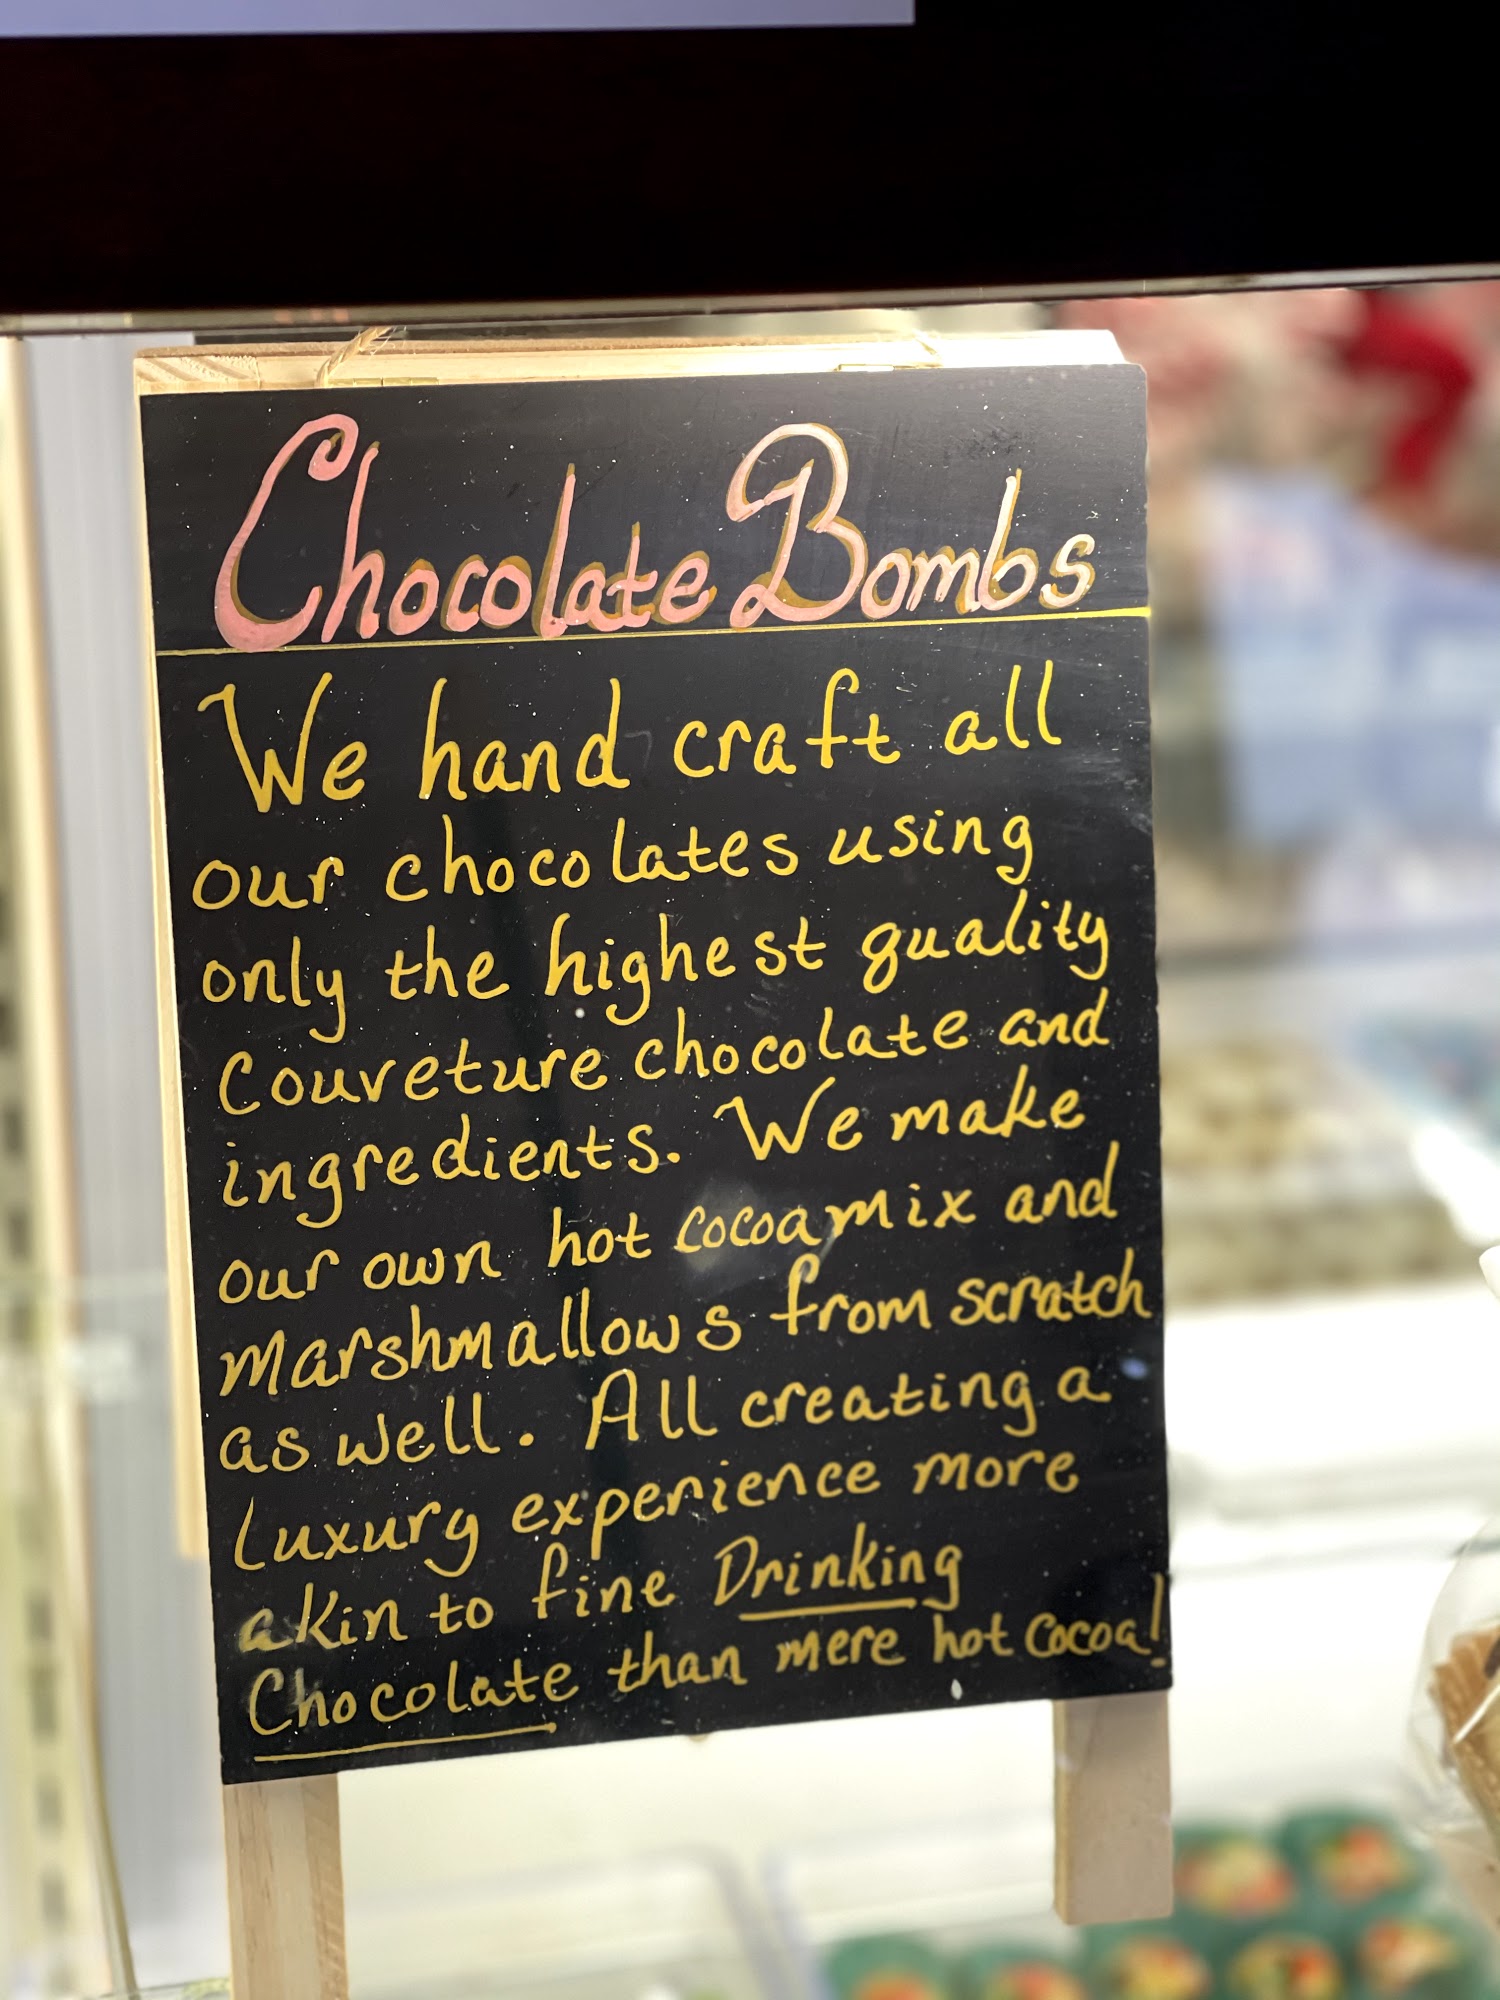 Chocolate Bombs
We hand craft all
our chocolates using
only the highest quality
Couveture chocolate and
ingredients. We make
our own hot cocoa mix and
marshmallows from scratch
as well. All creating a
Luxury experience more
akin to fine Drinking
Chocolate than mere hot cocoa!